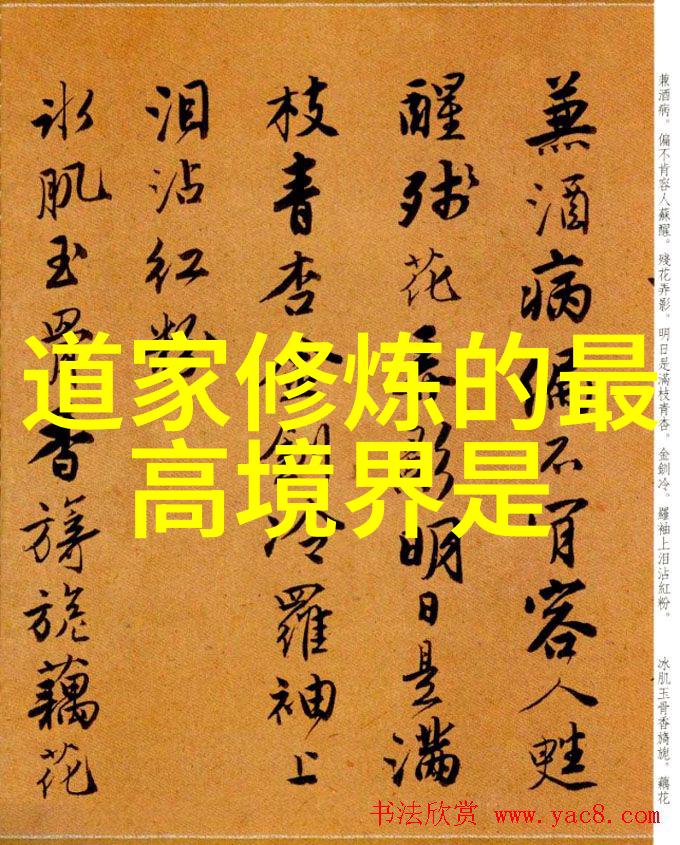 道家修炼的最
高境界是
兼酒病偏不肯容人甦
醒殘花弄影明日是滿
枝青杏金釧冷羅袖上
泪沾紅粉
冰肌玉骨香旖旎藕花
兼酒病。偏不肯容人蘇醒。殘花弄影。明日是滿枝青杏。金釧冷。羅袖上泪沾紅粉。 冰肌玉骨香旖旎。藕花
书法欣赏 www.yac8.com